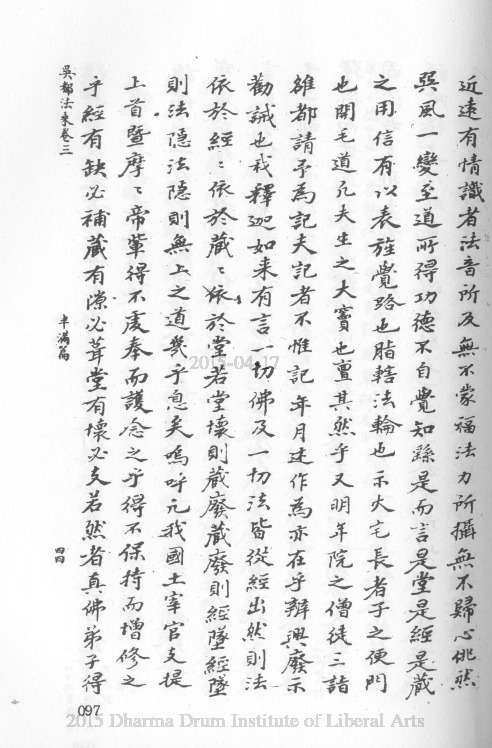 近遠有情識者法音所及無不蒙福法力所攝無不歸心佻然
巽風一變至道所得功德不自覺知繇是而言是堂是經是藏
之用信有以表旌覺路也脂轄法輪也示火宅長者子之便門
也開毛道凡夫生之大竇也亶其然乎又明年院之僧徒三詣
雒都請予為記夫記者不惟記年月述作為亦在乎辯興廢示
勸誡也我釋迦如来有言一切佛及一切法皆從經出然則法
依於經〻依於藏〻依於堂若堂壞則藏廢藏廢則經墜經墜
則法隱法隱則無上之道幾乎息矣嗚呼凡我國土宰官支提
上首暨摩〻帝輩得不虔奉而護念之乎得不保持而增修之
乎經有缺必補藏有隙必葺堂有壞必支若然者真佛弟子得
吳都法乘卷三
半滿篇
四四
097
2015-04-17
2015 Dharma Drum Institute of Liberal Arts